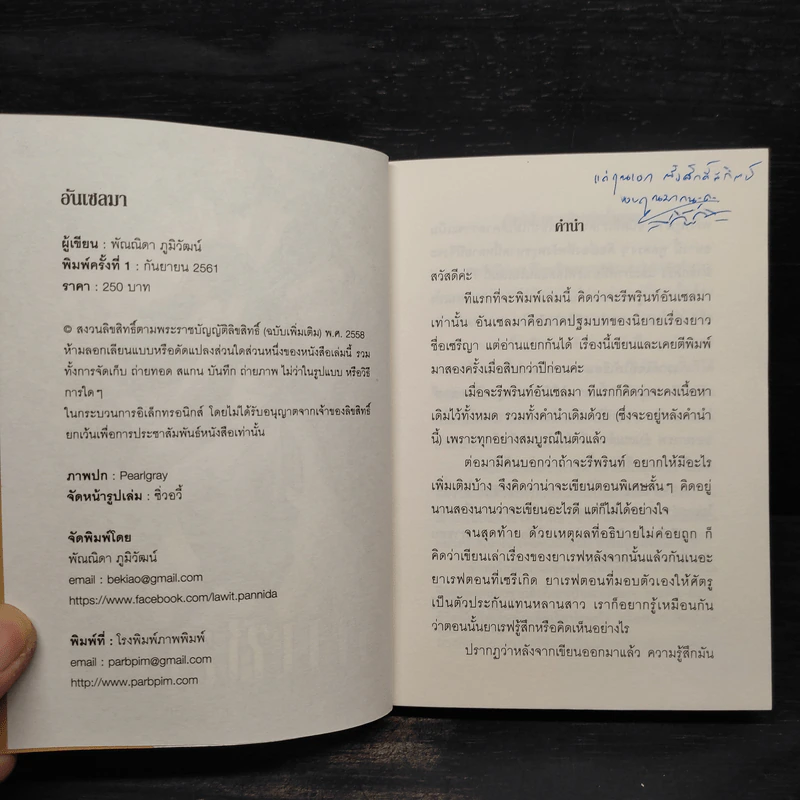 อันเซลมา
ผู้เขียน : พัณณิดา ภูมิวัฒน์
พิมพ์ครั้งที่ 1 : กันยายน 2561
ราคา : 250 บาท
© สงวนลิขสิทธิ์ตามพระราชบัญญัติลิขสิทธิ์ (ฉบับเพิ่มเติม) พ.ศ. 2558
ห้ามลอกเลียนแบบหรือดัดแปลงส่วนใดส่วนหนึ่งของหนังสือเล่มนี้ รวม
ทั้งการจัดเก็บ ถ่ายทอด สแกน บันทึก ถ่ายภาพ ไม่ว่าในรูปแบบ หรือวิธี
การใด ๆ
ในกระบวนการอิเล็กทรอนิกส์ โดยไม่ได้รับอนุญาตจากเจ้าของลิขสิทธิ์
ยกเว้นเพื่อการประชาสัมพันธ์หนังสือเท่านั้น
ภาพปก : Pearlgray
จัดหน้ารูปเล่ม : ซิ่วอวี้
จัดพิมพ์โดย
พัณณิดา ภูมิวัฒน์
email : bekiao@gmail.com
https://www.facebook.com/lawit.pannida
พิมพ์ที่ : โรงพิมพ์ภาพพิมพ์
email : parbpim@gmail.com
http://www.parbpim.com
แด่คุณเอก
ขอบคุณมากนะคะ
คำนำ
สวัสดีค่ะ
ทีแรกที่จะพิมพ์เล่มนี้ คิดว่าจะรีพรินท์อันเซลมา
เท่านั้น อันเซลมาคือภาคปฐมบทของนิยายเรื่องยาว
ชื่อเซรีญา แต่อ่านแยกกันได้ เรื่องนี้เขียนและเคยตีพิมพ์
มาสองครั้งเมื่อสิบกว่าปีก่อนค่ะ
เมื่อจะรีพรินท์อันเซลมา ทีแรกก็คิดว่าจะคงเนื้อหา
เดิมไว้ทั้งหมด รวมทั้งคำนำเดิมด้วย (ซึ่งจะอยู่หลังคำนำ
นี้) เพราะทุกอย่างสมบูรณ์ในตัวแล้ว
ต่อมามีคนบอกว่าถ้าจะรีพรินท์ อยากให้มีอะไร
เพิ่มเติมบ้าง จึงคิดว่าน่าจะเขียนตอนพิเศษสั้น ๆ คิดอยู่
นานสองนานว่าจะเขียนอะไรดี แต่ก็ไม่ได้อย่างใจ
จนสุดท้าย ด้วยเหตุผลที่อธิบายไม่ค่อยถูก ก็
คิดว่าเขียนเล่าเรื่องของยาเรฟหลังจากนั้นแล้วกันเนอะ
ยาเรฟตอนที่เซรีเกิด ยาเรฟตอนที่มอบตัวเองให้ศัตรู
เป็นตัวประกันแทนหลานสาว เราก็อยากรู้เหมือนกัน
ว่าตอนนั้นยาเรฟรู้สึกหรือคิดเห็นอย่างไร
ปรากฏว่าหลังจากเขียนออกมาแล้ว ความรู้สึกมัน